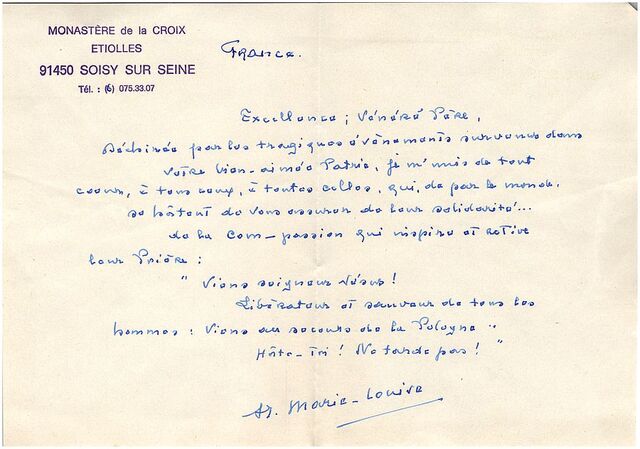 MONASTÈRE de la CROIX
ETIOLLES
91450 SOISY SUR SEINE
Tél. : (6) 075.33.07
FRANCE.
Excellence ; Vénéré Père,
Déchirée par les tragiques évènements survenus dans
votre bien-aimée Patrie, je m'unis de tout
coeur, à tous ceux, à toutes celles, qui, de par le monde,
se hâtent de vous assurer de leur solidarité...
de la Com-passion qui inspire et active
leur Prière :
" Viens seigneur Jésus !
Libérateur et sauveur de tous les
hommes : Viens au secours de la Pologne "
Hâte-Toi ! Ne tarde pas ! "
Sr. Marie-Louise